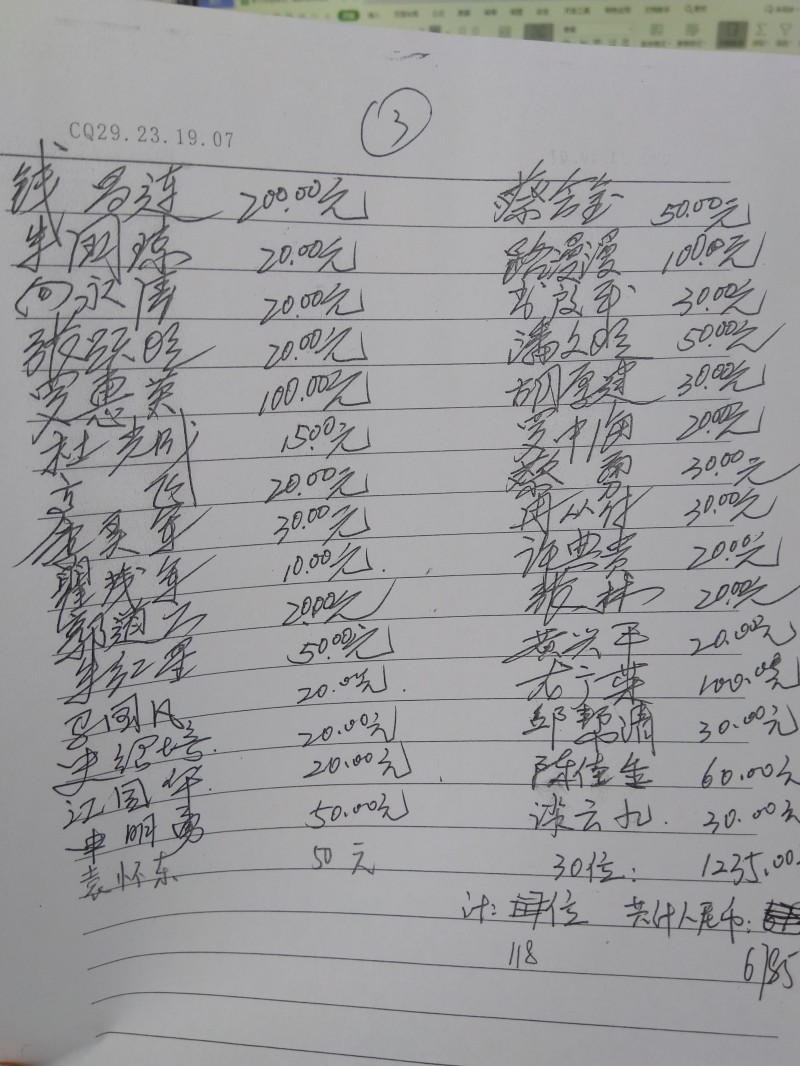 3
CQ29.23.19.07
钱昌连 200.00元
朱国琼 20.00元
向永清 20.00元
张跃旺 20.00元
贾惠英 100.00元
杜光成 15.00元
20.00元
军 30.00元
瞿茂军 10.00元
郭道云 20.00元
朱红军 50.00元
国凡 20.00元
史绍 20.00元
江国华 20.00元
申明勇 50.00元
袁怀东 50元
蔡含金 50.00元
路漫漫 100.00元
30.00元
潘文旺 50.00元
胡厚建 30.00元
罗中海 20.00元
勇 30.00元
周从付 30.00元
许典贵 20.00元
张林 20.00元
黄兴平 20.00元
广荣 100.00元
邱郭清 30.00元
陈佳金 60.00元
谈云九 30.00元
30位: 1235.00
计: 位 共计人民币:
118 6785